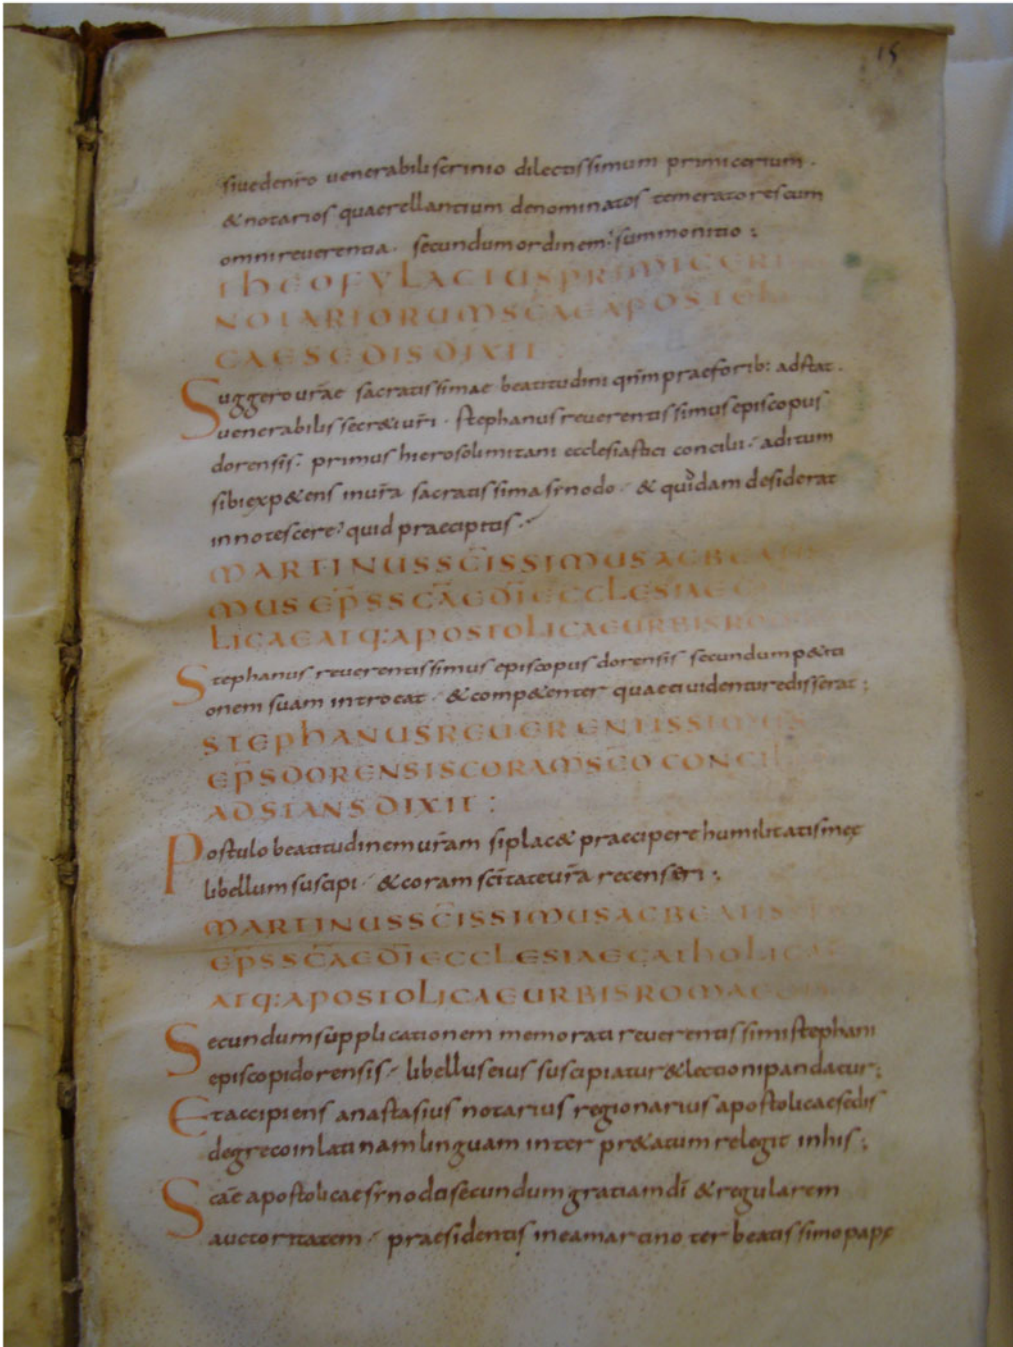 15
siuedenr̄o uenerabiliscrinio dilectissimum primicerium.
&notarios quaerellantium denominatos temeratorescum
omnireuerentia. secundumordinem: summonitio:
THEOFYLACTUSPRIMICERI
NOTARIORUMSC̄AEAPOSTOL
CAESEDISDIXIT
Suggerour̄ae sacratissimae beatitudini qn̄mpraeforib: adstat.
uenerabilissecr&iur̄i. stephanusreuerentissimusepiscopus
dorensis. primus hierosolimitani ecclesiastici concilii. aditum
sibiexp&ens inur̄a sacratissimasynodo. & quiddam desiderat
innotescere? quid praecipitis.
MARTINUSSC̄ISSIMUSACBEATIS
MUS EP̄SSC̄AEDĪECCLESIAE
LICAEATQ:APOSTOLICAEURBISRO
Stephanus reuerentissimus episcopus dorensis secundump&iti
onem suam introeat. &comp&enter quaeeiuidenturedisserat:
STEPHANUSREUERENTISSIMUS
EP̄SDORENSISCORAMSC̄O CONCIL
ADSTANSDIXIT:
Postulo beatitudinemur̄am siplac& praecipere humilitatismeę
libellum suscipi. &coram scītateur̄a recenseri:
MARTINUSSC̄ISSIMUSACBEATISSI
EP̄SSC̄AEDĪECCLESIAECATHOLICAE
ATQ:APOSTOLICAEURBISROMAE
Secundumsupplicationem memorati reuerentissimistephani
episcopidorensis. libelluseius suscipiatur&lectionipandatur:
Etaccipiens anastasius notarius regionarius apostolicaesedis
degrecoinlatinamlinguam interpr&atum relegit inhis:
Scāe apostolicaesynodi secundumgratiamdī &regularem
auctoritatem. praesidentis ineamartino ter beatissimopapę